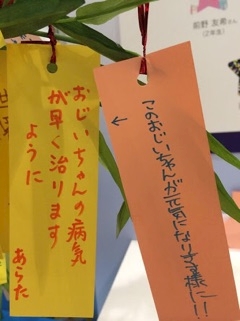 前野 友希さん
(2年生)
おじいちゃんの病気
が早く治ります
ように
あらた
このおじいちゃんが元気になります様に!!
←